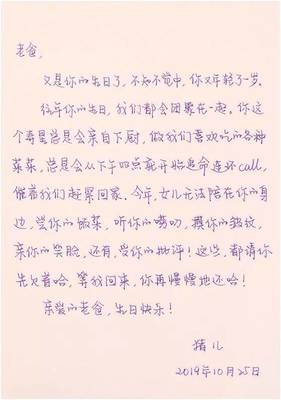 老爸，
又是你的生日了，不知不觉中，你又年轻了一岁。
往年你的生日，我们都会团聚在一起。你这
个寿星总是会亲自下厨，做我们喜欢吃的各种
菜菜，总是会从下午四点就开始追命连环call，
催着我们赶紧回家。今年，女儿无法陪在你的身
边，尝你的饭菜，听你的唠叨，摸你的皱纹，
亲你的笑脸，还有，受你的批评！这些，都请你
先欠着哈，等我回来，你再慢慢地还哈！
亲爱的老爸，生日快乐！
猪儿
2019年10月25日